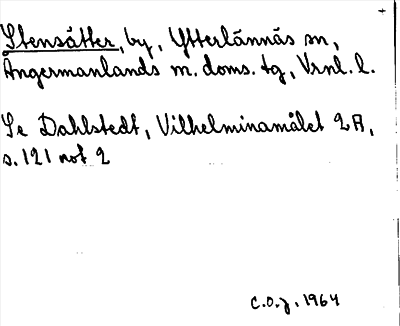 Stensätter, by, Ytterlännäs sn,
Ångermanlands m. doms. tg, Vrnl. l.
Se Dahlstedt, Vilhelminamålet 2A,
s. 121 not 2
C.O.J. 1964